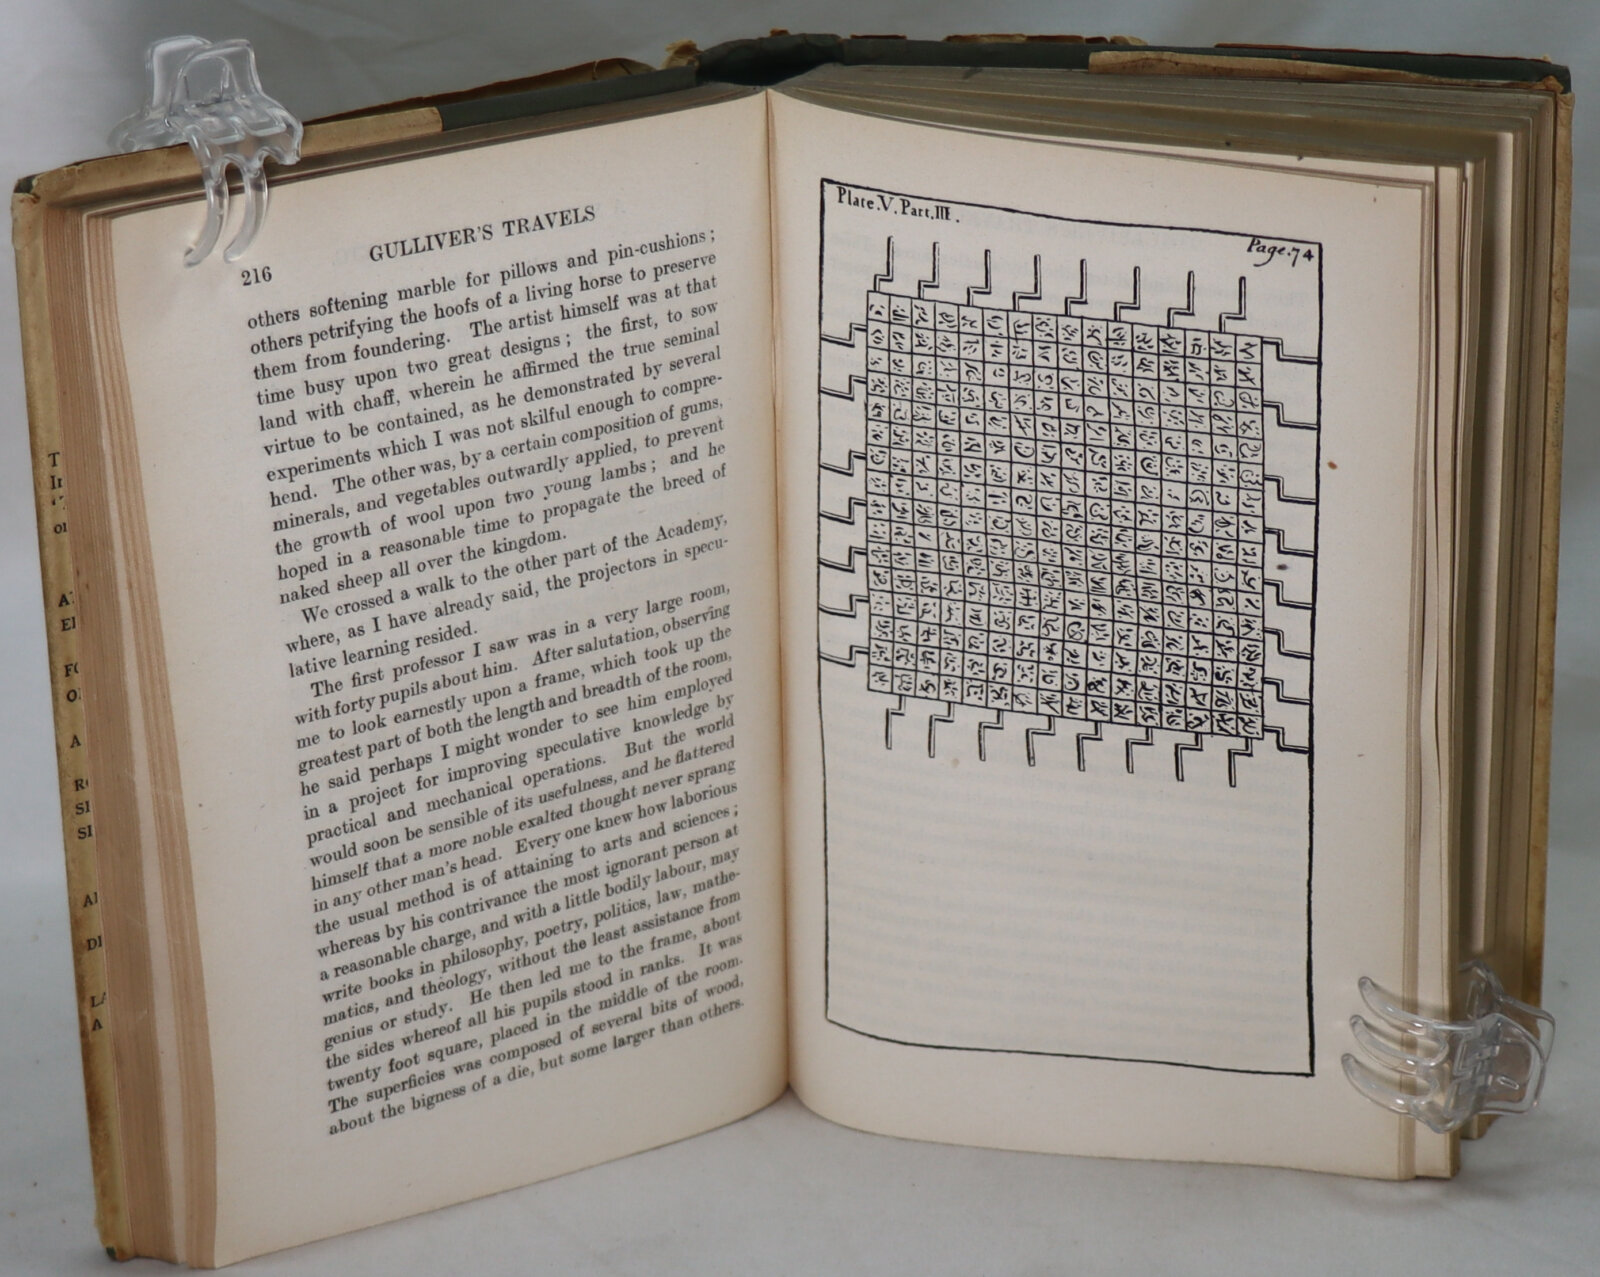 216
GULLIVER'S TRAVELS
others softening marble for pillows and pin-cushions;
others petrifying the hoofs of a living horse to preserve
them from foundering. The artist himself was at that
time busy upon two great designs; the first, to sow
land with chaff, wherein he affirmed the true seminal
virtue to be contained, as he demonstrated by several
experiments which I was not skilful enough to compre-
hend. The other was, by a certain composition of gums,
minerals, and vegetables outwardly applied, to prevent
the growth of wool upon two young lambs; and he
hoped in a reasonable time to propagate the breed of
naked sheep all over the kingdom.
We crossed a walk to the other part of the Academy,
where, as I have already said, the projectors in specu-
lative learning resided.
The first professor I saw was in a very large room,
with forty pupils about him. After salutation, observing
me to look earnestly upon a frame, which took up the
greatest part of both the length and breadth of the room,
he said perhaps I might wonder to see him employed
in a project for improving speculative knowledge by
practical and mechanical operations. But the world
would soon be sensible of its usefulness, and he flattered
himself that a more noble exalted thought never sprang
in any other man's head. Every one knew how laborious
the usual method is of attaining to arts and sciences;
whereas by his contrivance the most ignorant person at
a reasonable charge, and with a little bodily labour, may
write books in philosophy, poetry, politics, law, mathe-
matics, and theology, without the least assistance from
genius or study. He then led me to the frame, about
the sides whereof all his pupils stood in ranks. It was
twenty foot square, placed in the middle of the room.
The superficies was composed of several bits of wood,
about the bigness of a die, but some larger than others.
Plate.V.Part.III.
Page.74